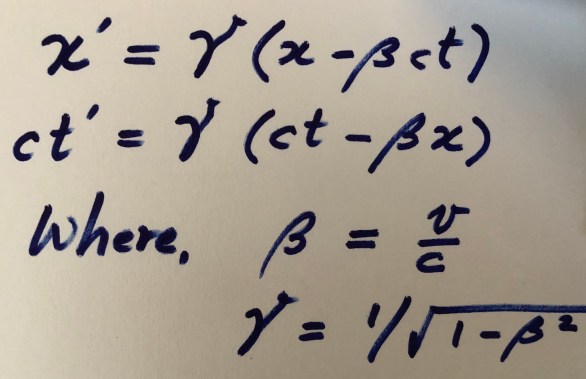 x′ = γ (x − βct)
ct′ = γ (ct − βx)
Where, β = v/c
γ = 1/√1 − β²